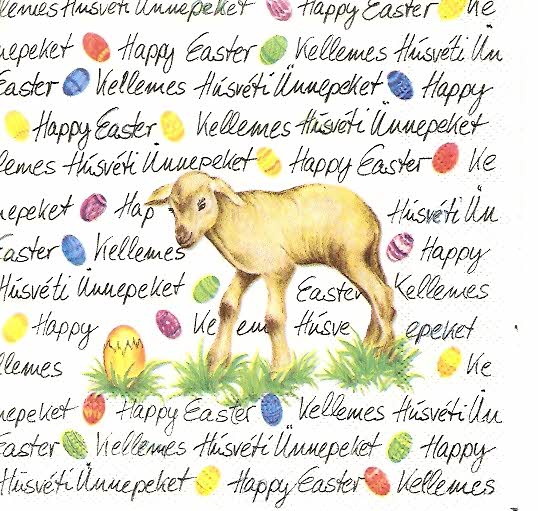 lemes Húsvéti Ünnepeket Happy Easter Ke
nepeket Happy Easter Kellemes Húsvéti Ün
Easter Kellemes Húsvéti Ünnepeket Happy
Happy Easter Kellemes Húsvéti Ünnepeket
lemes Húsvéti Ünnepeket Happy Easter Ke
nepeket Hap Húsvéti Ün
Easter Kellemes Happy
Húsvéti Ünnepeket Easter Kellemes
Happy Ke em Húsve epeket
llemes Ke
nepeket Happy Easter Kellemes Húsvéti Ün
Easter Kellemes Húsvéti Ünnepeket Happy
Húsvéti Ünnepeket Happy Easter Kellemes